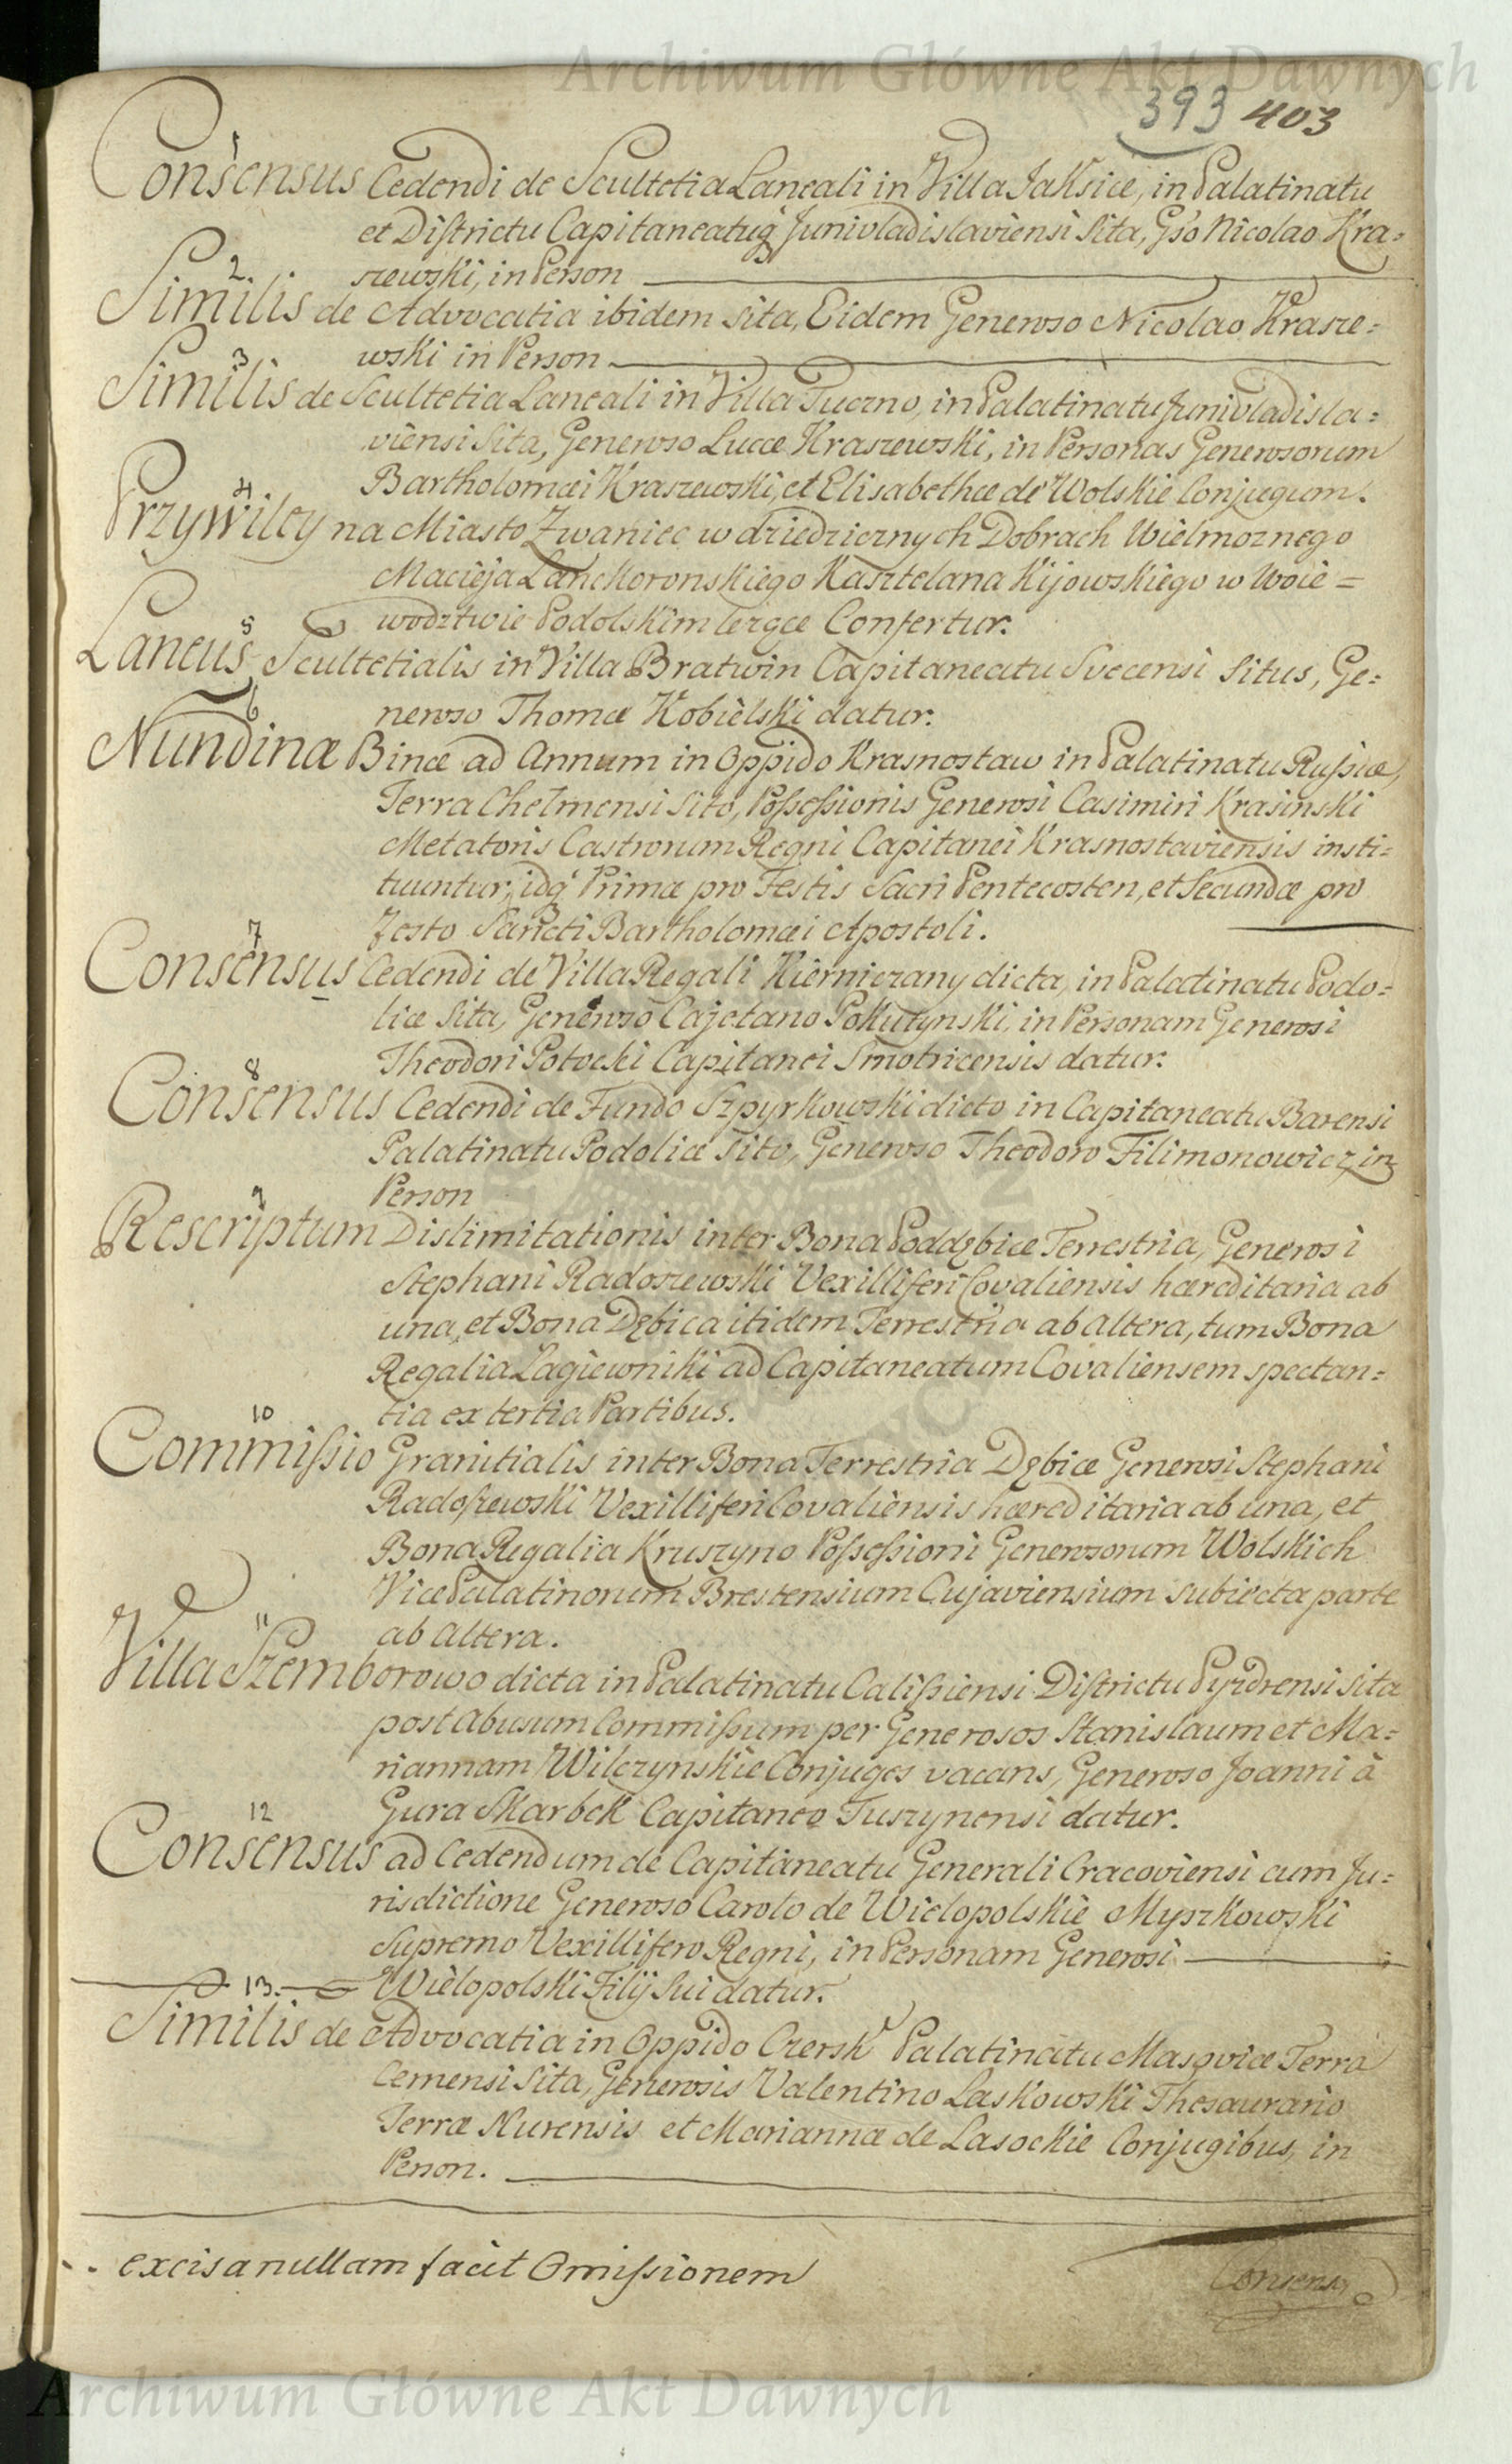 Archiwum Główne Akt Dawnych
393 403
1
Consensus Cedendi de Scultetia Laneali in Villa Jaksice, in Palatinatu
et Districtu Capitaneatuq Junivladislaviensi Sita, Gso Nicolao Kra=
szewski, in Person
2
Similis de Advocatia ibidem sita, Eidem Generoso Nicolao Krasze=
wski in Person
3
Similis de Scultetia Laneali in Villa Tuczno, in Palatinatu Junivladisla=
viensi Sita, Generoso Lucæ Kraszewski, in Personas Generosorum
Bartholomæi Kraszewski, et Elisabethæ de Wolskie Conjugum.
4
Przywiley na Miasto Zwaniec w dziedzicznych Dobrach Wielmoznego
Macieja Lanckoronskiego Kasztelana Kijowskiego w Woie=
wodztwie Podolskim lezące Confertur.
5
Laneus Scultetialis in Villa Bratwin Capitaneatu Svecensi Situs, Ge=
neroso Thomæ Kobielski datur.
6
Nundinæ Binæ ad Annum in Oppido Krasnostaw in Palatinatu Russiæ,
Terra Chelmensi Sito, Possessionis Generosi Casimiri Krasinski
Metatoris Castrorum Regni Capitanei Krasnostaviensis insti=
tuuntur, idq Primæ pro Festis Sacri Pentecosten, et Secundæ pro
Festo Sancti Bartholomæi Apostoli.
7
Consensus Cedendi de Villa Regali Kiernierzany dicta, in Palatinatu Podo=
liæ Sita, Generoso Cajetano Pokutynski, in Personam Generosi
Theodori Potocki Capitanei Smotricensis datur.
8
Consensus Cedendi de Fundo Szpyrkowski dicto in Capitaneatu Barensi
Palatinatu Podoliæ Sito, Generoso Theodoro Filimonowicz, in
Person
9
Rescriptum Dislimitationis inter Bona Poddębice Terrestria, Generosi
Stephani Radoszewski Vexilliferi Covaliensis hæreditaria ab
una, et Bona Dębica itidem Terrestria ab altera, tum Bona
Regalia Lagiewniki ad Capitaneatum Covaliensem spectan=
tia ex tertia Partibus.
10
Commissio Granitialis inter Bona Terrestria Dębice Generosi Stephani
Radoszewski Vexilliferi Covaliensis hæreditaria ab una, et
Bona Regalia Kruszyno Possessioni Generosorum Wolskich
Vice Palatinorum Brestensium Cujaviensium subiecta parte
ab altera.
11
Villa Szemborowo dicta in Palatinatu Calissiensi Districtu Pyzdrensi Sita
post abusum Commissum per Generosos Stanislaum et Ma=
riannam Wilczynskie Conjuges vacans, Generoso Joanni à
Gura Skarbek Capitaneo Tuszynensi datur.
12
Consensus ad Cedendum de Capitaneatu Generali Cracoviensi cum Ju=
risdictione Generoso Carolo de Wielopolskie Myszkowski
Supremo Vexillifero Regni, in Personam Generosi
Wielopolski Filij Sui datur.
13.
Similis de Advocatia in Oppido Czersk Palatinatu Masoviæ Terra
Cernensi Sita, Generosis Valentino Laskowski Thesaurario
Terræ Nurensis et Mariannæ de Lasockie Conjugibus, in
Person.
excisa nullam facit Omissionem
Consens,
Archiwum Główne Akt Dawnych